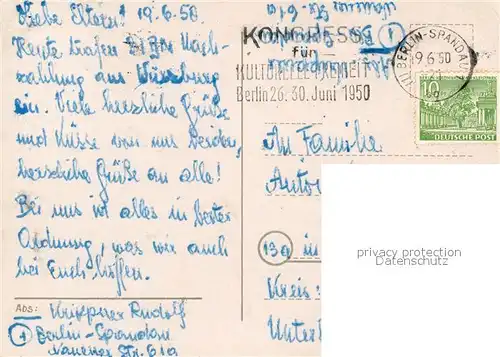 Liebe Eltern! 19.6.50
Heute trafen
zahlung aus Würzburg
ein. Viele herzliche Grüße
und Küsse von uns beiden,
herzliche Grüße an alle!
Bei uns ist alles in bester
Ordnung, was wir auch
bei Euch hoffen.
Abs: Krippner Rudolf
1 Berlin-Spandau
Str. 61a
KONGRESS
für
KULTURELLE FREIHEIT
Berlin 26.-30. Juni 1950
BERLIN-SPANDAU 1
19.6.50
10
DEUTSCHE POST
An Familie
Anton
13a in
Kreis:
privacy protection
Datenschutz